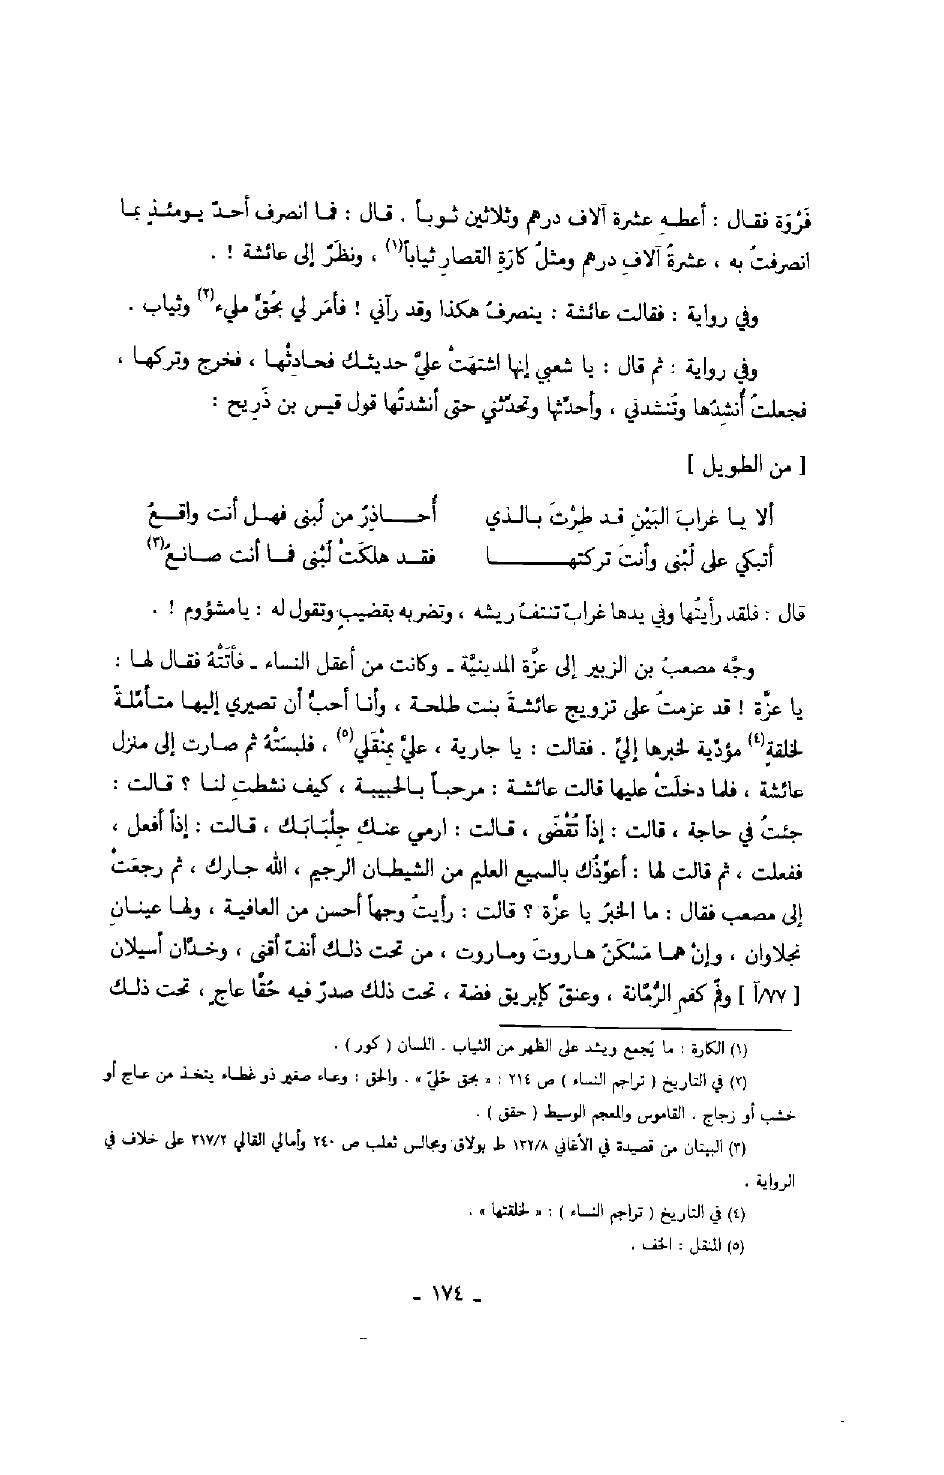 فَرْوَة فقال : أعطـه عشرة آلاف درهم وثلاثين ثوباً . قال : فما انصرف أحدٌ يومئذٍ بما
انصرفتُ به ، عشرةُ آلافِ درهم ومثلُ كارَةِ القصارِ ثياباً(١) ، ونظرٌ إلى عائشة ! .
وفي رواية : فقالت عائشة : ينصرفُ هكذا وقد رآني ! فأمَر لي بحُقٍّ مليء(٢) وثياب .
وفي رواية : ثم قال : يا شعبي إنها اشتهَتْ عليَّ حديثك فحادِثْها ، فخرج وتركها ،
فجعلتُ أُنشِدُها وتُنشدني ، وأحدّثها وتحدّثني حتى أنشدتُها قول قيس بن ذَريح :
[ من الطويل ]
ألا يا غرابَ البَيْنِ قد طِرْتَ بالذي أُحـــاذِرُ من لُبنى فهل أنت واقعُ
أتبكي على لُبْنى وأنتَ تركتهـــا فقد هلكَتْ لُبْنى فما أنت صانعُ(٣)
قال : فلقد رأيتُها وفي يدها غرابٌ تنتفُ ريشه ، وتضربه بقضيبٍ وتقول له : يا مشؤوم ! .
وجَّه مصعبُ بن الزبير إلى عزَّة المدينيَّة ـ وكانت من أعقل النساء ـ فأتَتْهُ فقال لها :
يا عزَّة ! قد عزمتُ على تزويج عائشةَ بنت طلحة ، وأنا أحبُّ أن تصيري إليها متأمّلةً
لخلقةٍ(٤) مؤدّية لخبرها إليَّ . فقالت : يا جارية ، عليَّ بِمنْقَلي(٥) ، فلبسَتْهُ ثم صارت إلى منزل
عائشة ، فلما دخلَتْ عليها قالت عائشة : مرحباً بالحبيبة ، كيف نشطتِ لنا ؟ قالت :
جئتُ في حاجة ، قالت : إذاً تُقْضَى ، قالت : ارمي عنكِ جِلْبابَك ، قالت : إذاً أفعل ،
ففعلت ، ثم قالت لها : أعوّذُك بالسميع العليم من الشيطان الرجيم ، الله جارك ، ثم رجعَتْ
إلى مصعب فقال : ما الخبرُ يا عزَّة ؟ قالت : رأيتُ وجهاً أحسن من العافية ، ولها عينانِ
نجلاوان ، وإنْ هما مَسْكَنُ هاروتَ وماروت ، من تحت ذلك أنفٌ أقنى ، وخدَّان أسيلان
[ ٧٧/آ ] وفمٌ كفم الرُّمّانة ، وعنقٌ كإبريق فضة ، تحت ذلك صدرٌ فيه حُقَّا عاجٍ ، تحت ذلك
(١) الكارة : ما يُجمع ويشد على الظهر من الثياب . اللسان ( كور ) .
(٢) في التاريخ ( تراجم النساء ) ص ٢١٤ : « بحق حُليّ » . والحق : وعاء صغير ذو غطاء يتخذ من عاج أو
خشب أو زجاج . القاموس والمعجم الوسيط ( حقق ) .
(٣) البيتان من قصيدة في الأغاني ١٣٢/٨ ط بولاق ومجالس ثعلب ص ٢٤٠ وأمالي القالي ٣١٧/٢ على خلاف في
الرواية .
(٤) في التاريخ ( تراجم النساء ) : « لخلقتها » .
(٥) المنقل : الخف .
ـ ١٧٤ ـ